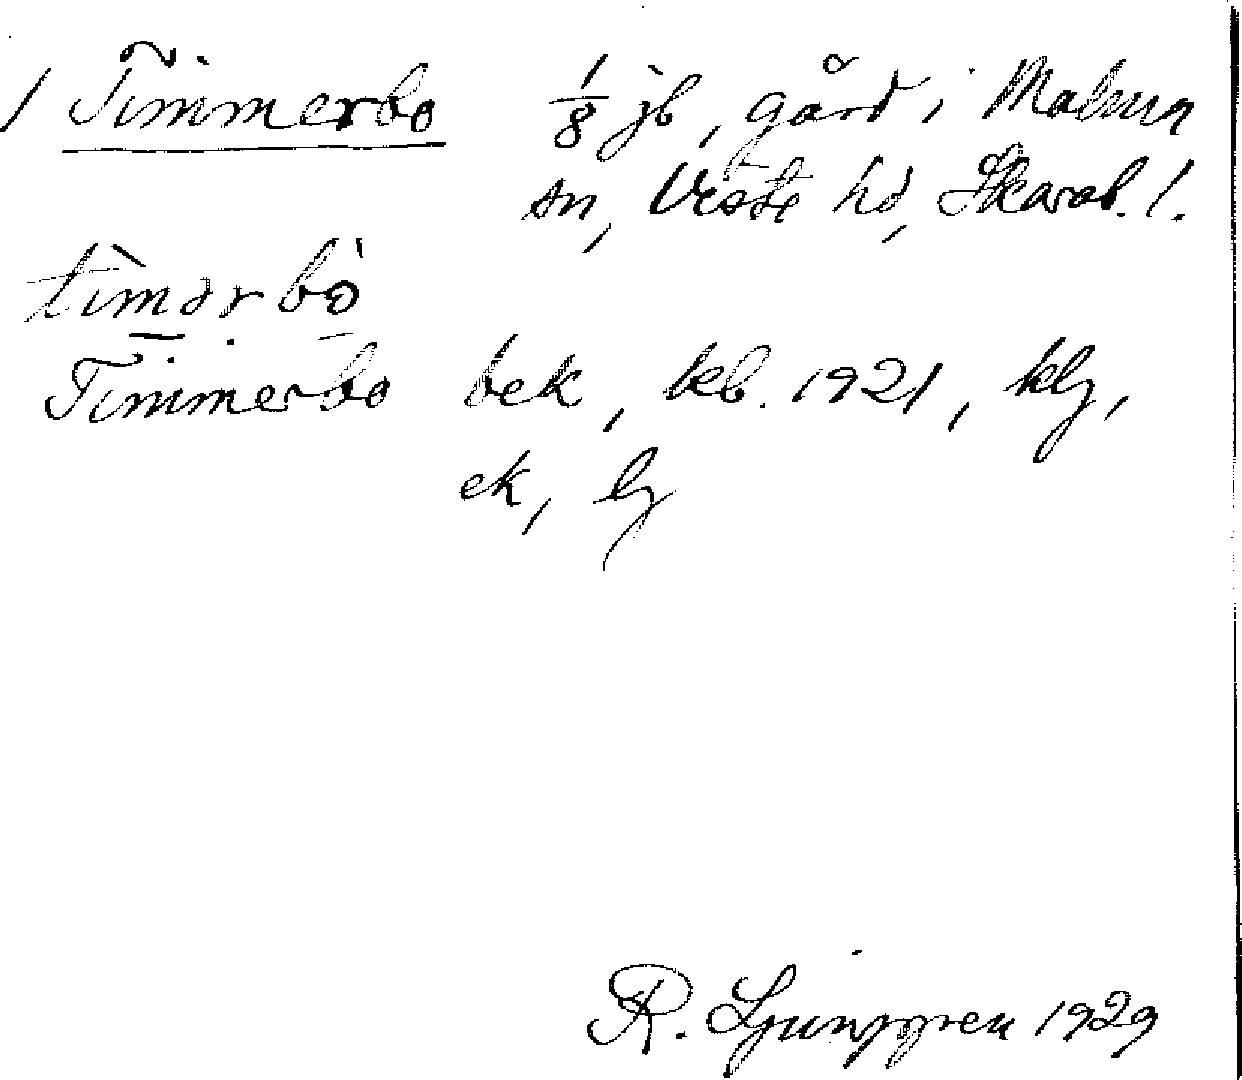 1 Timmerbo 1/8 jb, gård i Malma
sn, Viste hd, Skarab. l.
tìmərbò
Timmerbo bek, kb. 1921, klj,
ek, lj
R. Ljunggren 1929